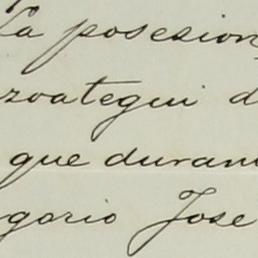 La posesion
zoategui d
que duran
gorio Jose